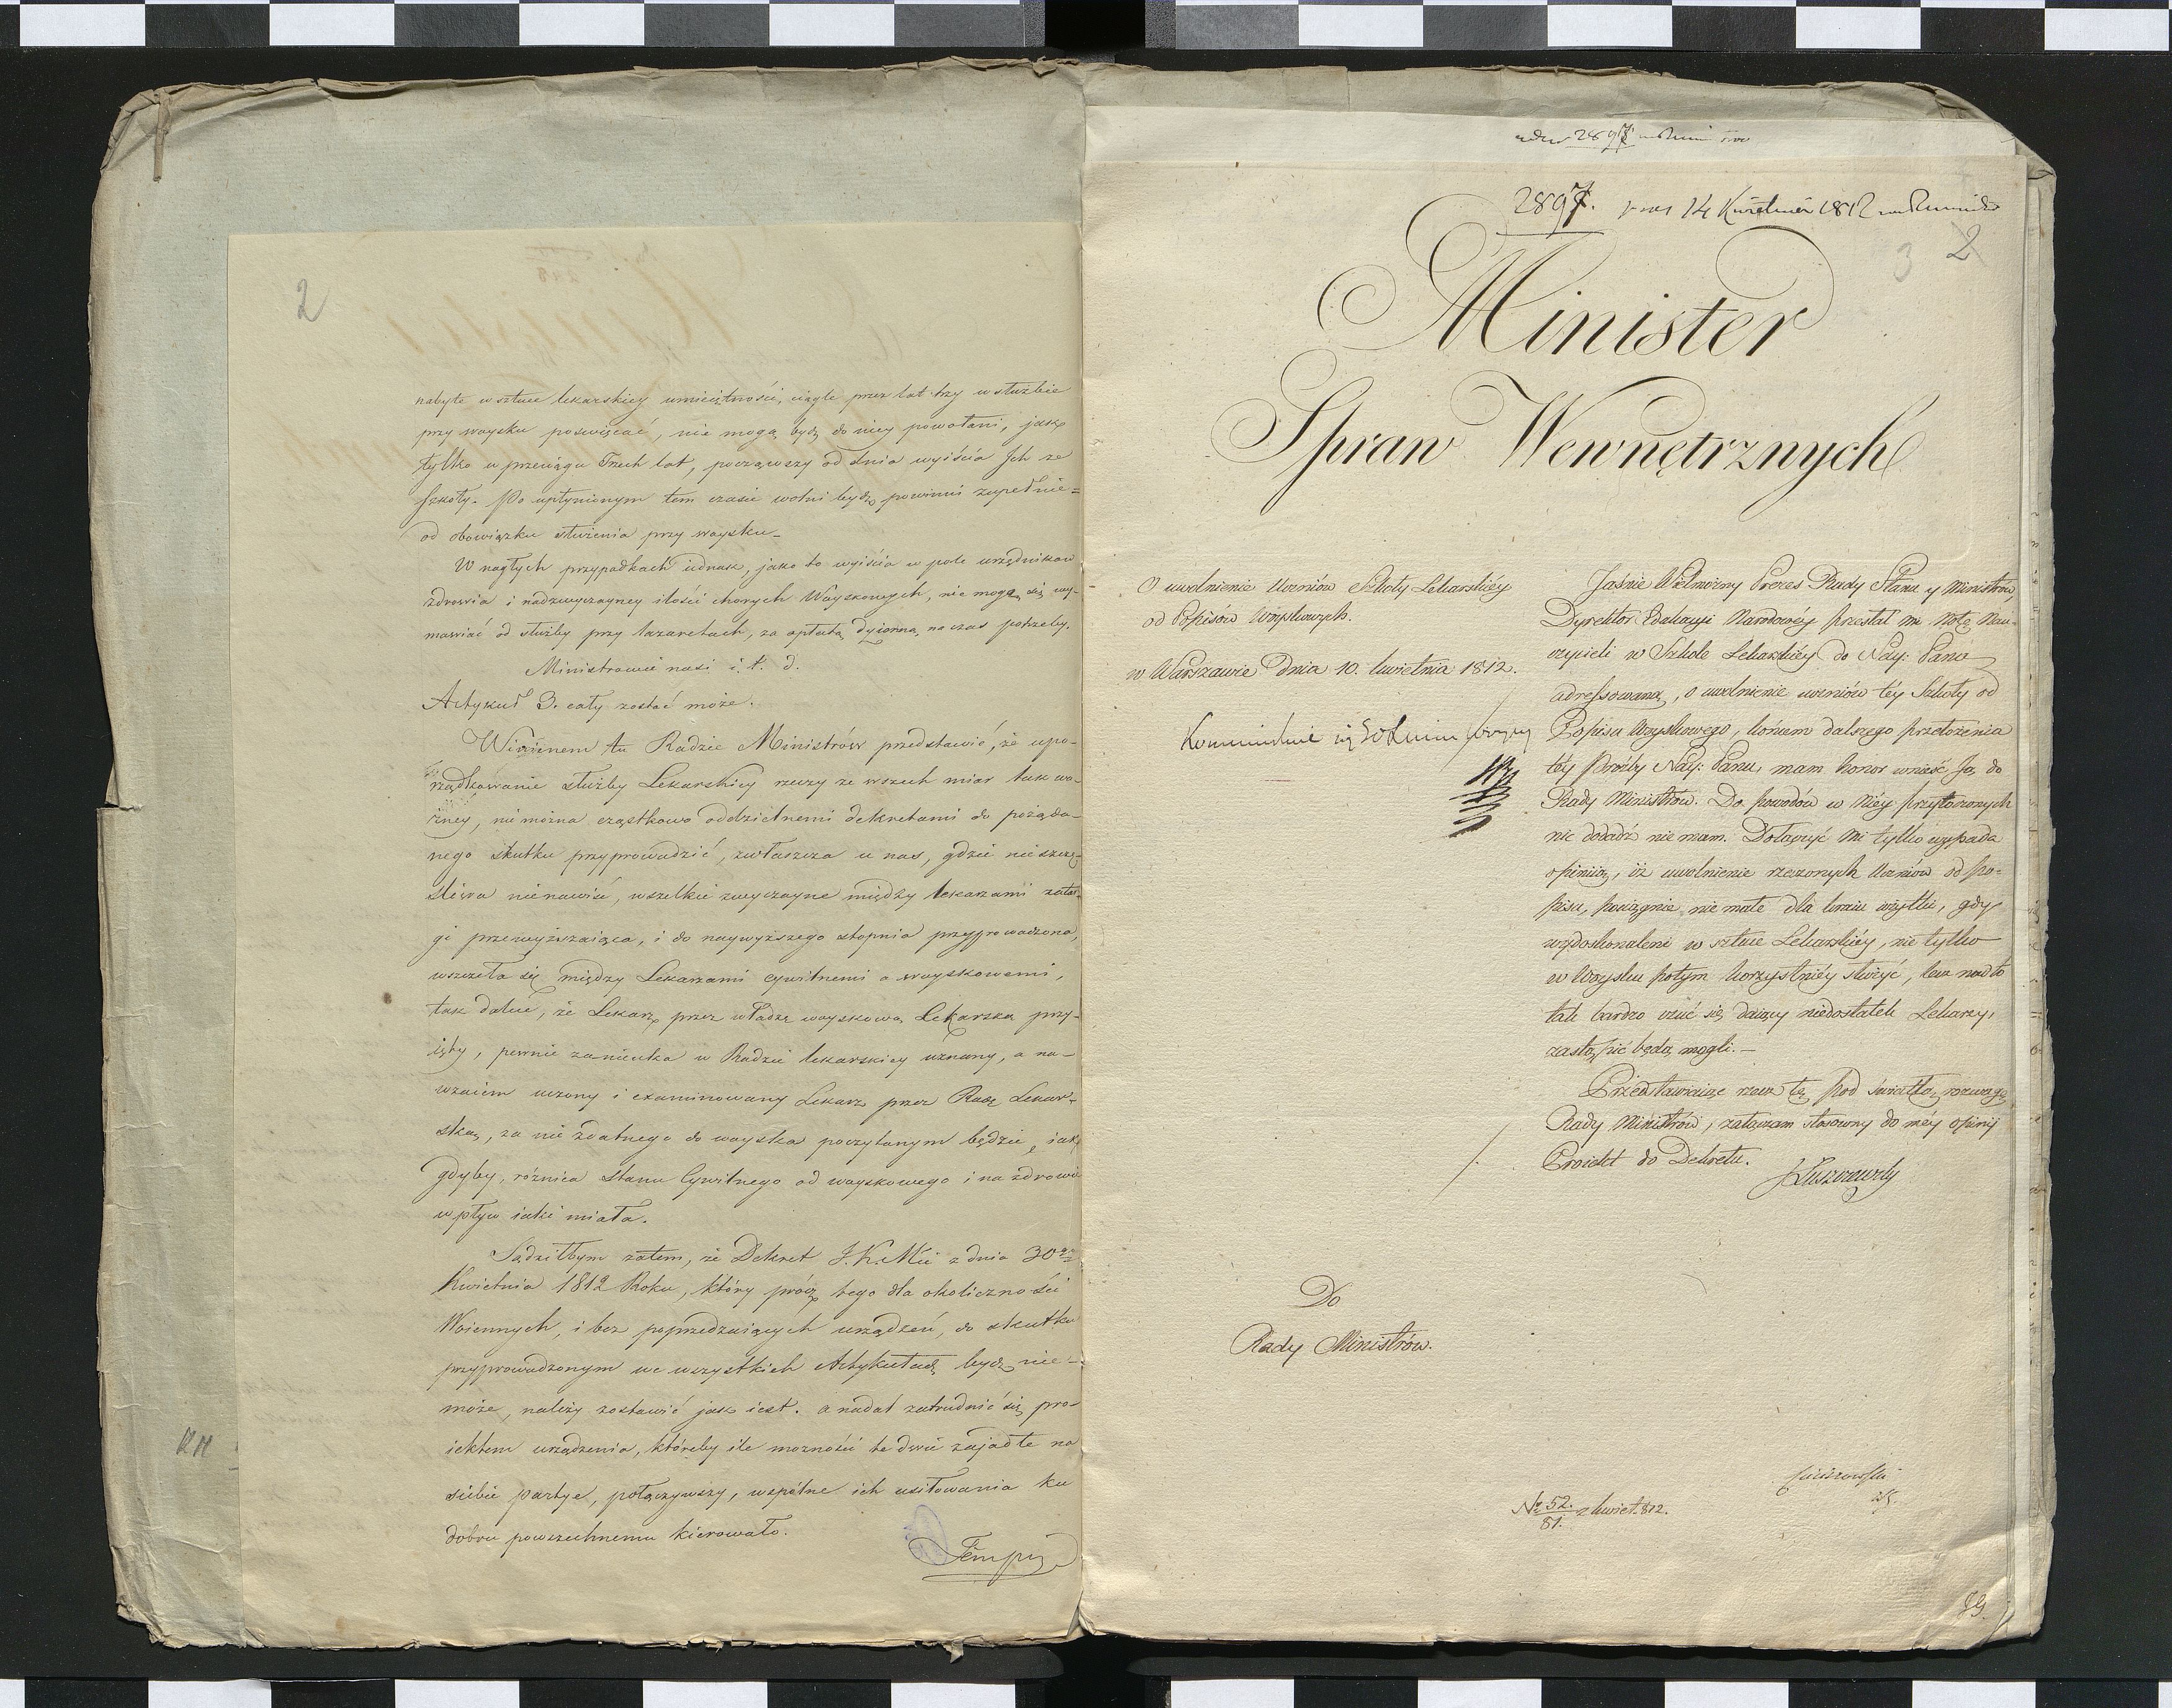 2
nabyte w sztuce lekarskiey umieiętności, ciągle przez lat trzy w służbie
przy woysku poswięcać, nie mogą bydź do niey powołani, jak
tylko w przeciągu Trzech lat, począwszy od dnia wyiścia Ich ze
Szkoły. Po upłynionym tem czasie wolni bydź powinni zupełnie=
od obowiązku służenia przy woysku_
W nagłych przypadkach iednak, jako to wyiścia w pole urzędnikow
zdrowia i nadzwyczayney ilości chorych Woyskowych, nie mogą się wy-
mawiać od służby przy lazaretach, za opłatą dyienną, na czas potrzeby.
Ministrowie nasi i. t. d.
Artykuł 3. cały zostać może.
Winienem tu Radzie Ministrów przedstawić, że upo-
rządkowanie służby Lekarskiey rzeczy ze wszech miar tak wa-
żney, nie można cząstkowo oddzielnemi dekretami do pożąda-
nego skutku przyprowadzić, zwłaszcza u nas, gdzie nieszczę-
śliwa nienawiść, wszelkie zwyczayne między lekarzami zatar-
gi przewyższaiąca, i do naywyższego stopnia przyprowadzona,
wszczeła się między Lekarzami cywilnemi a woyskowemi,
tak daleie, że Lekarz przez władzę woyskową Lekarską przy-
ięty, pewnie za nieuka w Radzie lekarskiey uznany, a na-
wzaiem uczony i examinowany Lekarz przez Radę Lekar-
ską, za nie zdatnego do woyska poczytanym będzie, iak
gdyby, różnica stanu Cywilnego od woyskowego i na zdrowie
wpływ iaki miała.
Sądziłbym zatem, że Dekret J. K. Mci z dnia 30go
Kwietnia 1812 Roku, który prócz tego dla okoliczności
Woiennych, i bez poprzedzaiących urządzeń, do skutku
przyprowadzonym we wszystkich Artykułach bydź nie-
może, należy zostawić jak iest. a nadal zatrudnić się pro-
iektem urządzenia, któreby ile możności te dwie zajadłe na
siebie partye, połączywszy, wspólne ich usiłowania ku
dobru powszechnemu kierowało.
RM
2897. 14 Kwietnia 1812
3 2
Minister
Spraw Wewnętrznych
O uwolnienie Uczniów Szkoły Lekarskiéy
od Popisów Woyskowych.
w Warszawie Dnia 10. kwietnia 1812.
Jaśnie Wielmożny Prezes Rady Stanu y Ministrów,
Dyrektor Edukacyi Narodowéy przesłał mi Notę Nau-
czycieli w Szkole Lekarskiéy do Nay: Pana
adressowaną, o uwolnienie uczniów téy Szkoły od
Popisu Woyskowego, końcem dalszego przełożenia
téy Prośby Nay: Panu, mam honor wnieść Ją do
Rady Ministrów. Do powodów w Niéy przytoczonych
nic dodadź nie mam. Dołączyć mi tylko wypada
opiniią, iż uwolnienie rzeczonych Uczniów od Po-
pisu, pociągnie nie małe dla kraiu użytki, gdy
wydoskonaleni w sztuce Lekarskiéy, nie tylko
w Woysku potym korzystniéy służyć, lecz nadto
tak bardzo czuć się daiący niedostatek Lekarzy,
zastąpić będą mogli.—
Przedstawiaiąc rzecz tę pod światłą rozwagę
Rady Ministrów, załączam stosowny do méy opinij
Proiekt do Dekretu.
JŁuszczewsky
Do
Rady Ministrów.
No 52. z kwiet: 812.
81.
89.